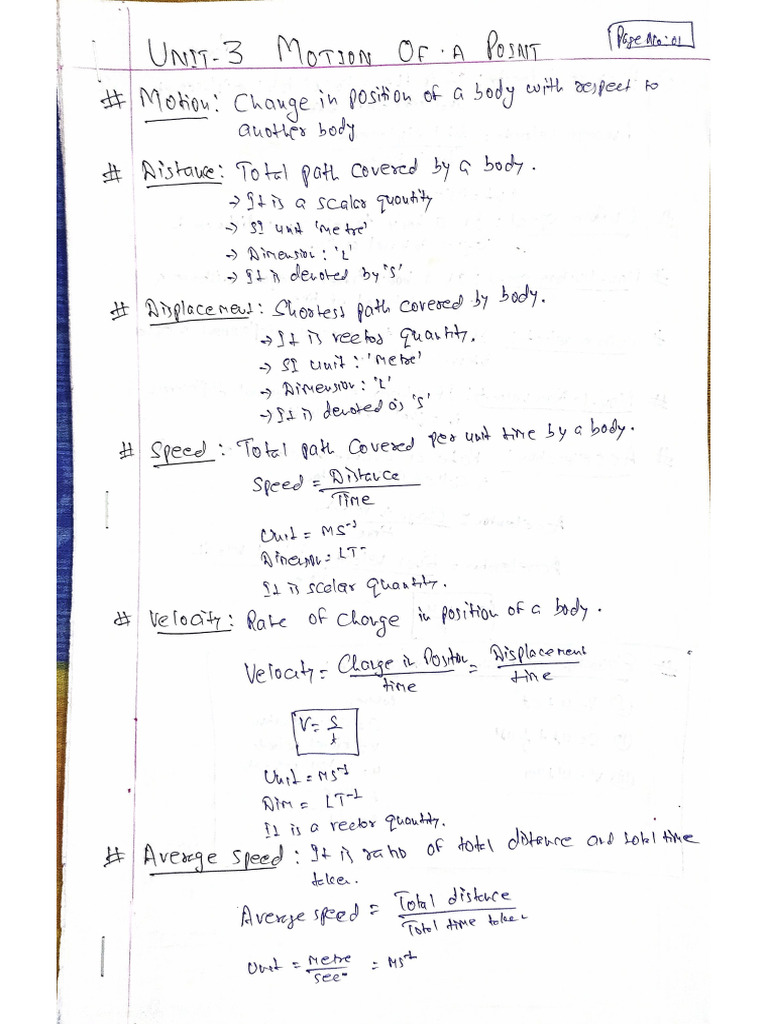 UNIT-3 MOTION OF A POINT
Page No:01
# Motion: Change in position of a body with respect to
another body
# Distance: Total path covered by a body.
→ It is a scalar quantity
→ SI unit 'Metre'
→ Dimension: 'L'
→ It is denoted by 'S'
# Displacement: Shortess path covered by body.
→ It is vector quantity.
→ SI unit: 'Metre'
→ Dimension: 'L'
→ It is denoted as 'S'
# Speed: Total path covered per unit time by a body.
Speed = Distance
Time
Unit = MS⁻¹
Dimension = LT⁻
It is scalar quantity.
# Velocity: Rate of change in position of a body.
Velocity = Change in Position = Displacement
time time
V = S
t
Unit = MS⁻¹
Dim = LT⁻¹
It is a vector quantity.
# Average speed: It is ratio of total distance and total time
taken.
Average speed = Total distance
Total time taken
Unit = Metre = MS⁻¹
Sec